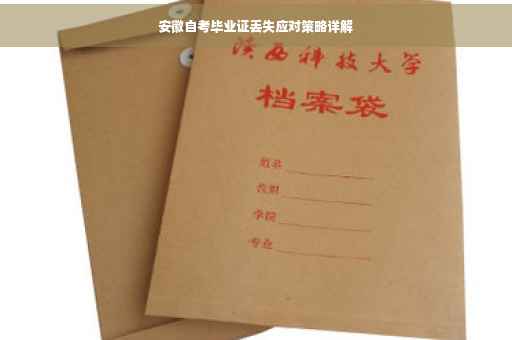 安徽自考毕业证丢失应对策略详解
陕西科技大学
档案袋
学院
专业